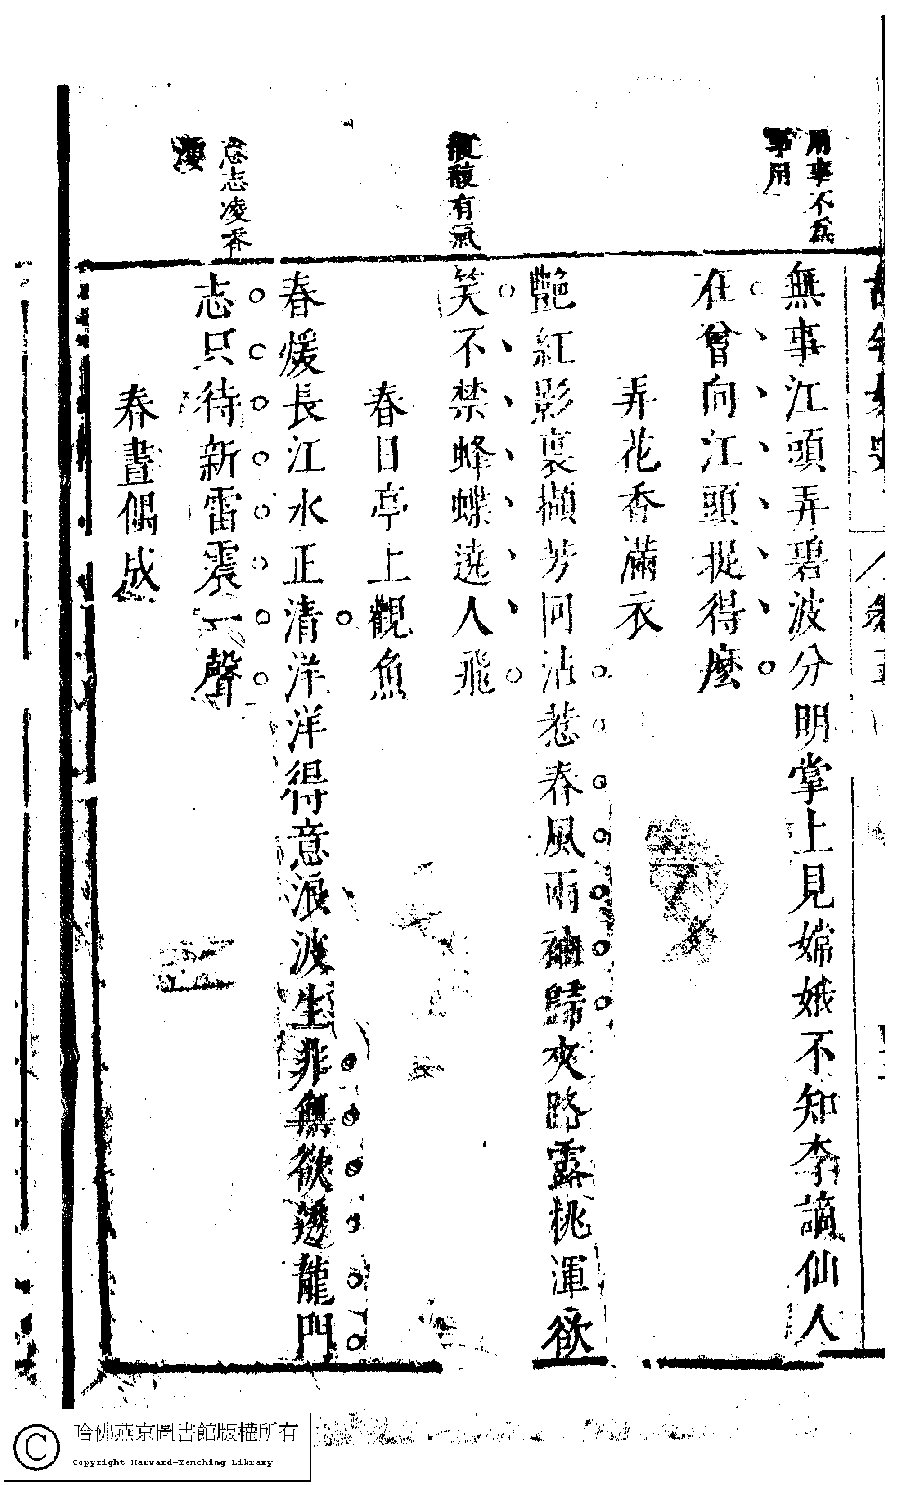 用事不爲
事用
馥馥有氣
志凌
無事江頭弄碧波分明掌上見嫦娥不知李謫仙人
在曾向江頭捉得麼
弄花香滿衣
艷紅影裏擷芳回沾惹春風雨袖歸夾路露桃渾欲
笑不禁蜂蝶遶人飛
春日亭上觀魚
春煖長江水正清洋洋得意浪波生非無欲透龍門
志只待新雷震一聲
春晝偶成
哈佛燕京圖書館版權所有
Copyright Harvard-Yenching Library